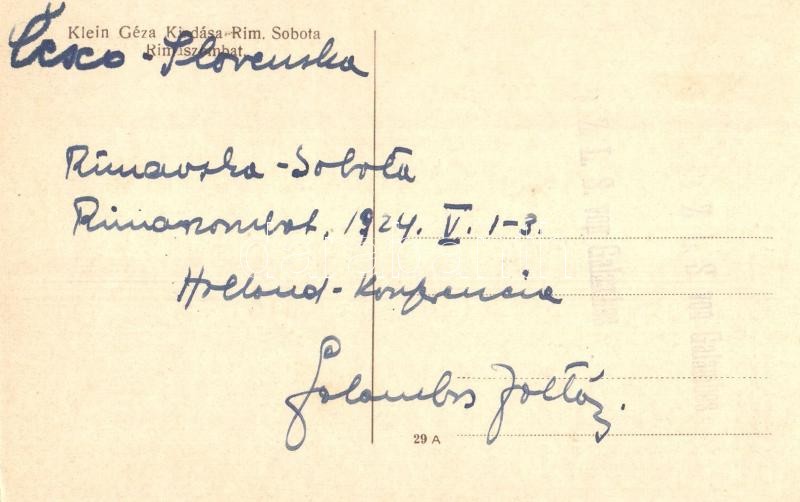 Klein Géza Kiadása Rim. Sobota
Rimaszombat
Česco-Slovenska
Rimavska-Sobota
Rimaszombat, 1924. V. 1-3.
Holland-Konferencia
Galambos Zoltán.
29 A